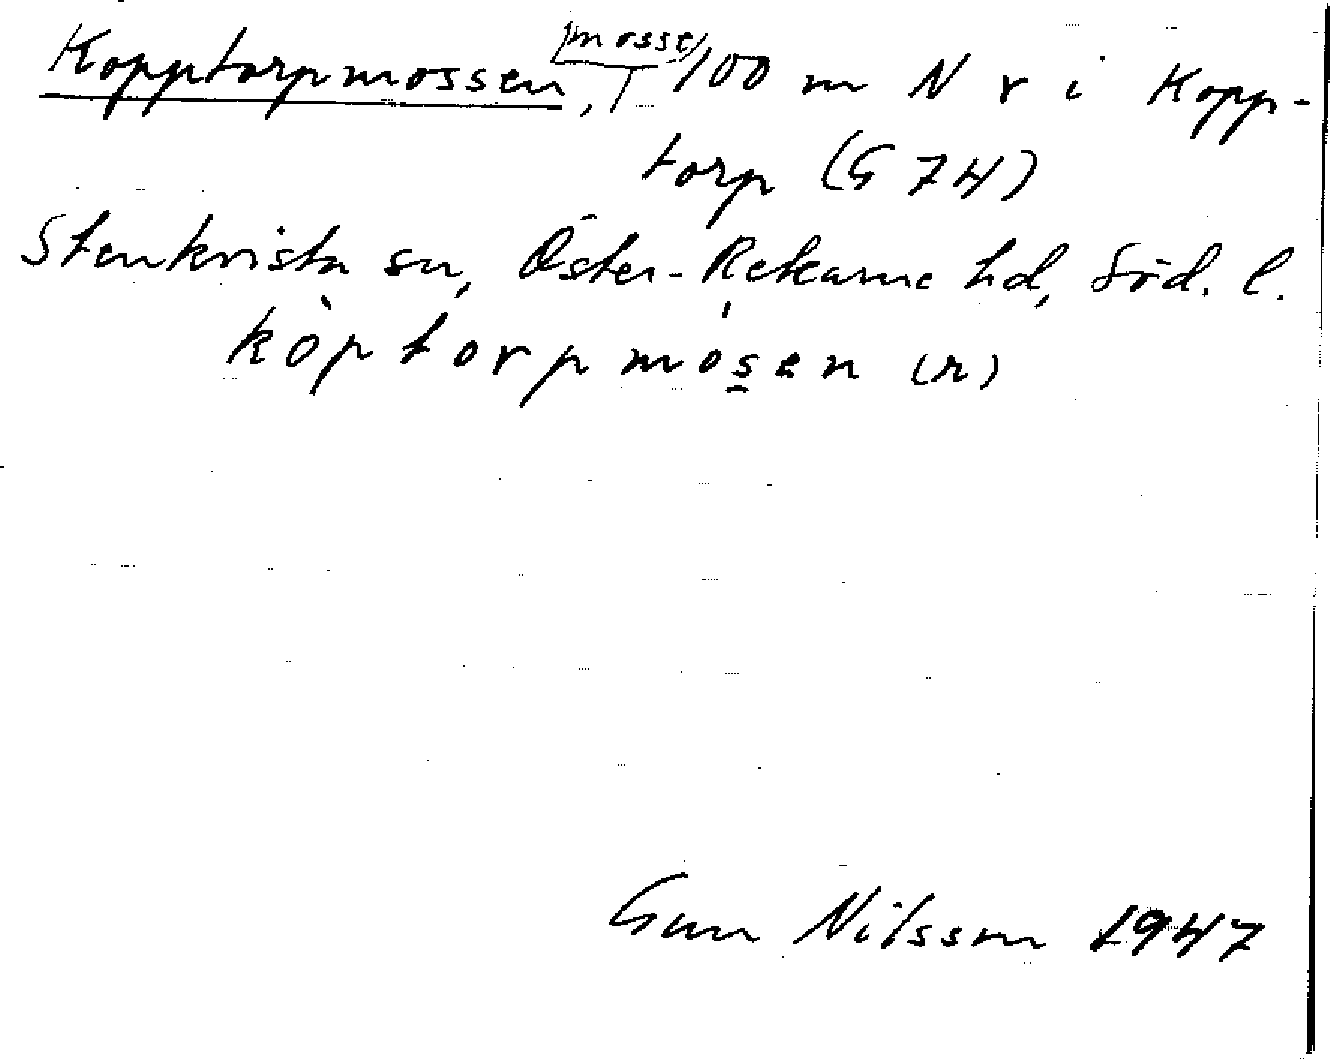 Kopptorpmossen, mosse 100 m N r i Kopp-
torp (G 74)
Stenkvista sn, Öster-Rekarne hd, Söd. l.
kòptorpmós̲en (r)
Gun Nilsson 1947